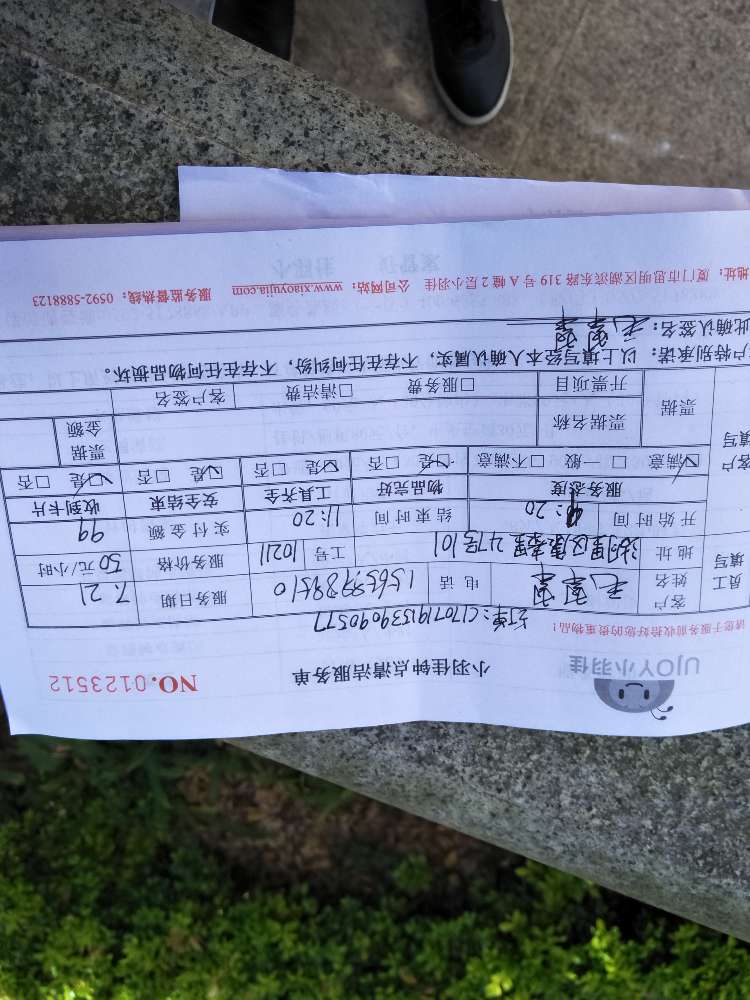 UJOY小羽佳
小羽佳钟点清洁服务单
NO.0123512
请您于服务前收拾好您的贵重物品!
订单:C1707191539090577
员工填写
客户姓名
电话
服务日期 7.21
地址
工号 10211
服务价格 50 元/小时
开始时间 9:20
结束时间 11:20
实付金额 99
客户填写
服务态度 物品完好 工具齐全 安全结束 收到卡片
☑满意 □一般 □不满意 ☑是 □否 ☑是 □否 ☑是 □否 ☑是 □否
票据
票据名称
票据金额
开票项目 □服务费 □清洁费 客户签名
户特别承诺:以上填写经本人确认属实,不存在任何纠纷,不存在任何物品损坏。
此确认签名:
地址:厦门市思明区湖滨东路 319 号 A 幢 2 层小羽佳 公司网站:www.xiaoyujia.com 服务监督热线:0592-5888123